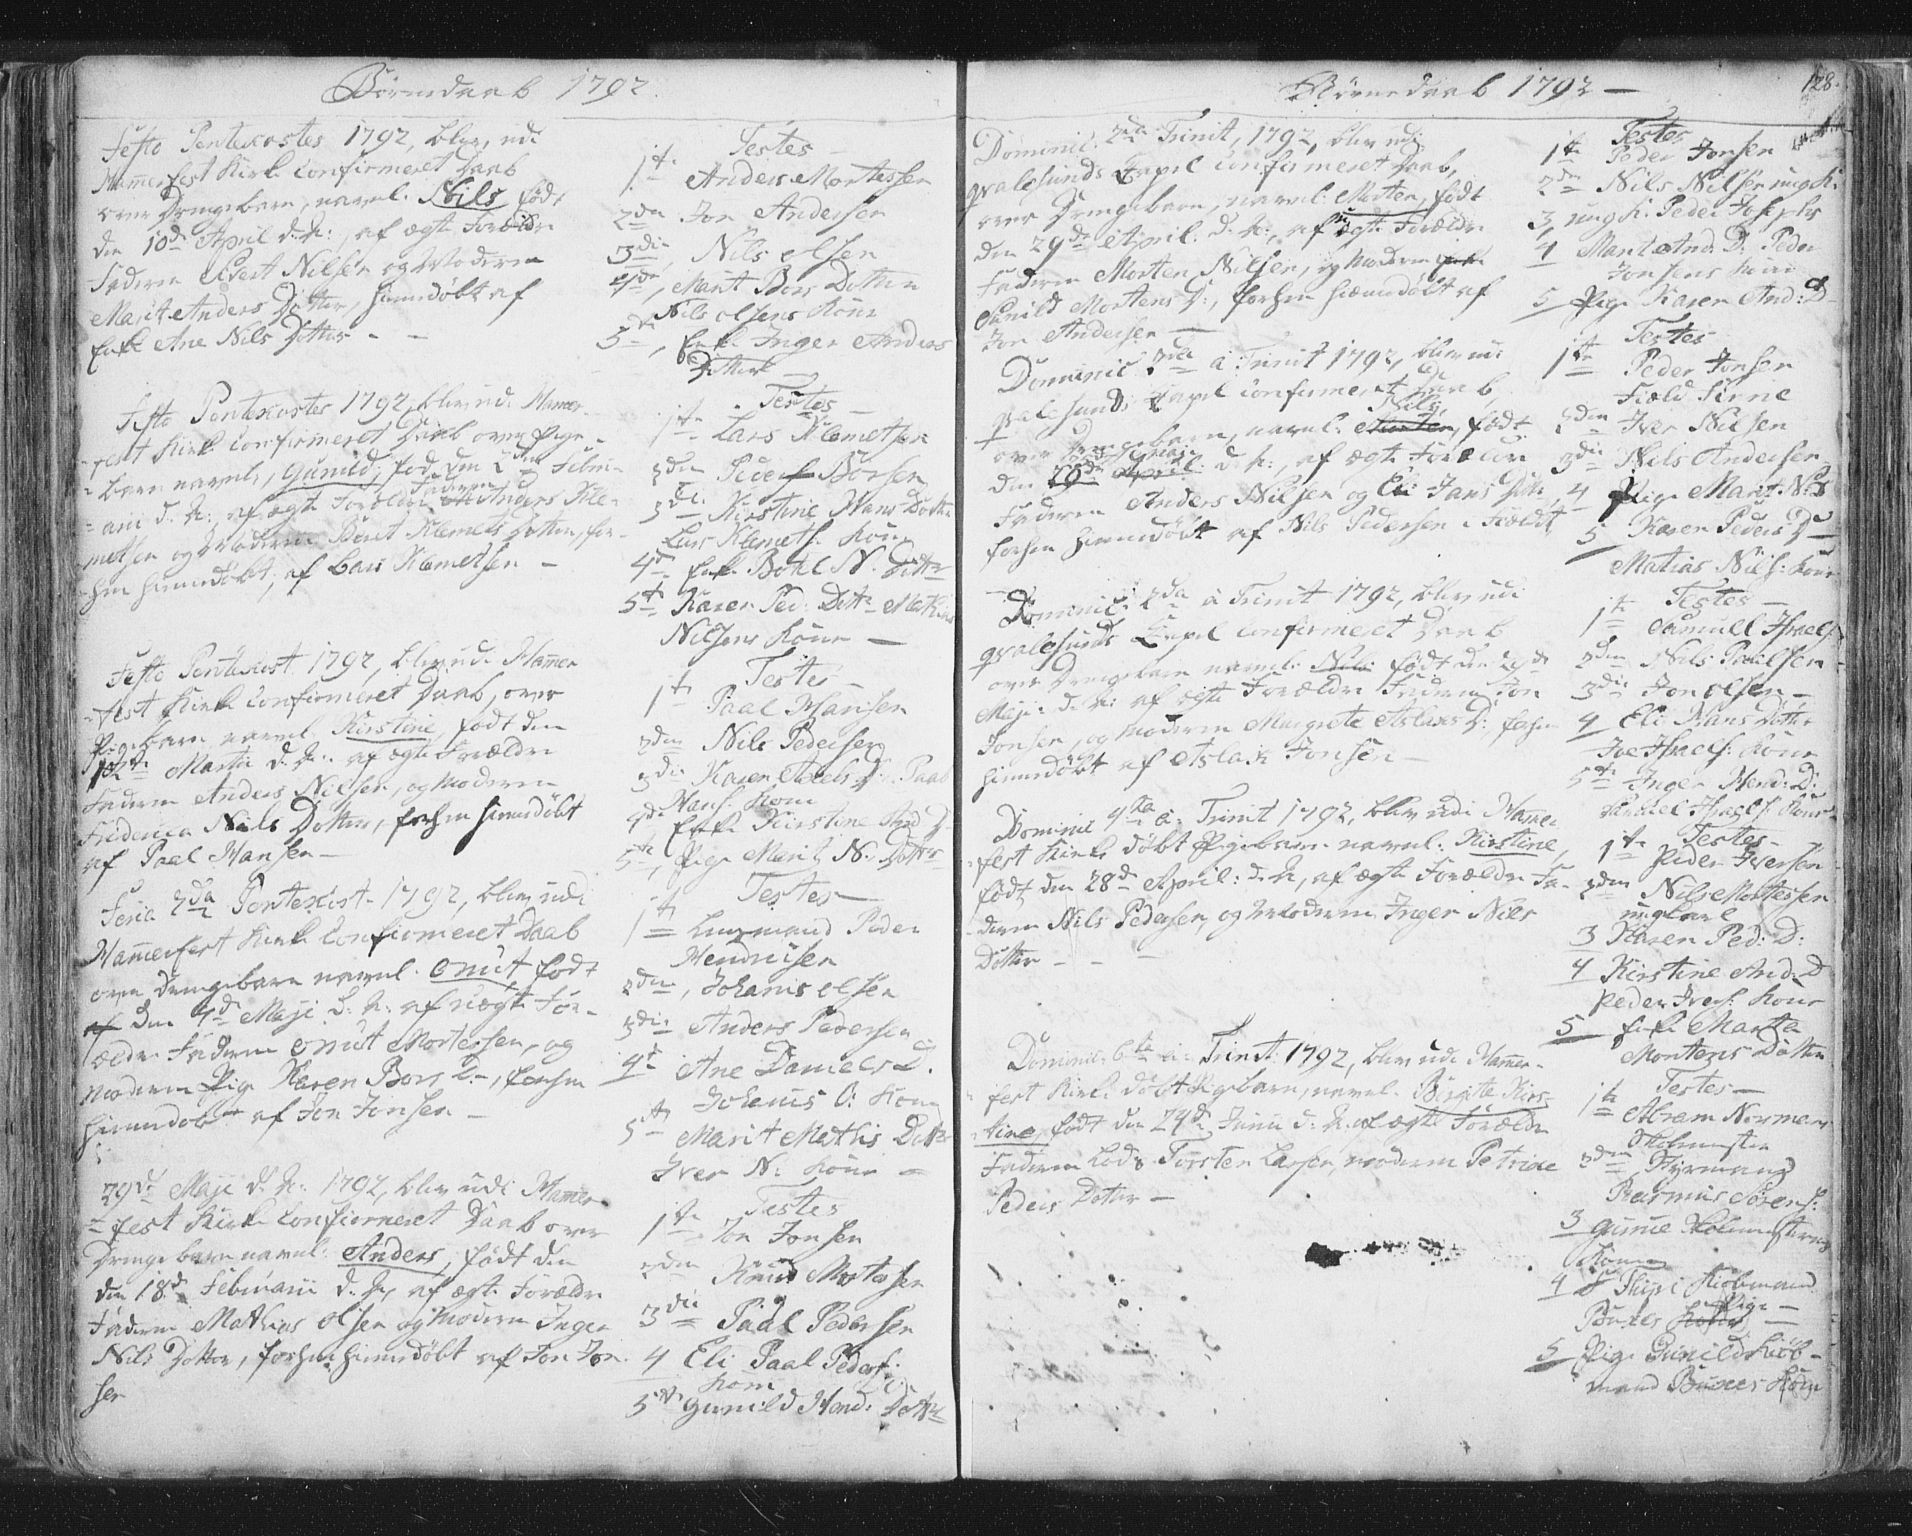 Børnedaab 1792.
Festo Pentecostes 1792, blev udi
Hammerfest Kirke Confirmeret Daab
over Drengebarn, navnl. Nils, født
den 10de April d. A:, af ægte Forældre
Faderen Evert Nilsen og Moderen
Marit Anders Dotter, hiemdøbt af
Enke Ane Nils Dotter - -
Testes
1te Anders Mortessen
2den Jon Andersen
3die, Nils Olsen
4de, Marit Bors Dotter
Nils Olsens Kone
5te, Enke Inger Andres
Dotter
Festo Pentecostes 1792, blev udi Hamer-
fest Kirke Confirmeret Daab over Pige-
barn navnl., Gunild, fød den 2den Febru-
arii d. A:, af ægte Forældre Faderen Anders Kle-
metsen og Moderen Børet Klemets Dotter, for-
hen hiemdøbt, af Lars Klemetsen -
Testes -
1te Lars Klemetsen
2den Peder Borsen
3die Kirstine Hans Dotter
Lars Klemets. Kone
4de Enke Botil N. Dotter
5te Karen Ped: Dotr Mathias
Nilsens Kone -
Festo Pentecost 1792, blev udi Hamer-
fest Kirke Confirmeret Daab, over
Pigebarn, navnl. Kirstine, født den
Martii d. A:. af ægte Forældre
Faderen Anders Nilsen, og Moderen
Friderica Nils Dotter, forhen hiemdøbt
af Paal Hansen -
Testes
1te Paal Hansen
2den Nils Pedersen
3die Karen D: Paal
Hans. Kone
4de Enke Kirstine And D
5te, Pige Marit N. Dotter
Feria 2da Pentecost. 1792, blev udi
Hammerfest Kirke Confirmeret Daab
over Drengebarn navnl. Cnut, født
af den 4de Maji d. A. af uægte For-
ældre Faderen Cnut Mortessen, og
Moderen Pige Karen Bors D. -, forhen
hiemdøbt af Jon Jonsen -
Testes -
1te Lensmand Peder
Hendricsen
2den, Johanis Olsen
3die Anders Pedersen
4de Ane Daniels D.
Johanis O: Kone
5te Marit Mathis Dotter
Iver N: Kone -
29de Maji d. A: 1792, blev udi Hamer-
fest Kirke Confirmeret Daab over
Drengebarn navnl: Anders, født den
den 18de Februarii d. A, af ægte Forældre
Faderen Mathias Olsen og Moderen Inger
Nils Dotter, forhen hiemdøbt af Jon Jon-
sen
Testes
1te Jon Jonsen
2den Knud Mortensen
3die Paal Pedersen
4 Eli Paal Peders:
Kone
5te Gunild Hend: Dotter
Børnedaab 1792 - 128.
Dominic. 2da Trinit, 1792, blev udi
Qvalsunds Capel Confirmeret Daab,
over Drengebarn, navnl: Morten, født
den 29de April: d. A:, af ægte Forældre
Faderen Morten Nilsen, og Moderen
Gunild Mortens D:, forhen hiemdøbt af
Jon Andersen -
Testes
1te Peder Jonsen
2den Nils Nilsen ung K.
3, ung K. Peder Josephs
4 Marit And: D. Peder
Jonsens Kone
5 Pige Karen And: D
Dominic. 2da a Trinit 1792, blev udi
Qvalsunds Capel Confirmeret Daab
over Drengebarn, navnl: Morten, Nils, født
den 29de April: Maji d. A:, af ægte Forældre
Faderen Anders Nilsen og Eli Jans Dotr,
forhen hiemdøbt af Nils Pedersen i Fieldt
Testes
1te Peder Jonsen
2den Iver Nilsen
3die Nils Andersen
4 Pige Marit N: D
5 Karen Peders D
Matias Nils: Kone
Dominic: 2da a Trinit 1792, blev udi
Qvalsunds Capel Confirmeret Daab
over Drengebarn navnl: Nils født den 29de
Maji d. A: af ægte Forældre Faderen Jon
Jonsen, og Moderen Margrete Aslaks D: forhen
hiemdøbt af Aslak Jonsen -
Testes -
1te Samuell Israels.
2den Nils Paulsen
3die Jon Olsen -
4 Eli Hans Dotter
Joe Israels: Kone
5te Inger Hend: D:
Israels: Kone
Dominic 4ta a: Trinit 1792, blev udi Hamer-
fest Kirke døbt Pigebarn navnl. Kirstine,
født den 28de April: d. A, af ægte Forældre Fa-
deren Nils Pedersen, og Moderen Inger Nils
Dotter - - -
Testes -
1te Peder Iversen
2den Nils Mortessen
ungkarl
3 Karen Ped: D:
4 Kirstine And: D
Peder Ivers: Kone
5 Enke Marta
Mortens Dotter
Dominic: 6ta a: Trinit: 1792, blev udi Hamer-
fest Kirke døbt Pigebarn, navnl. Birgitte Kirs-
tine, født den 24de Junii d. A. af ægte Forældre
Faderen Lods Torsten Larsen, Moderen Petrice
Peders Dotter -
Testes -
1te Abram Norman
Skolemester
2den Styrmand
Rasmus Sørens:
3 Skolemesterens
Kone
4 Kiobmand
Buckes Pige -
5 Pige Gunild Kiøb-
mand Buckes Kone